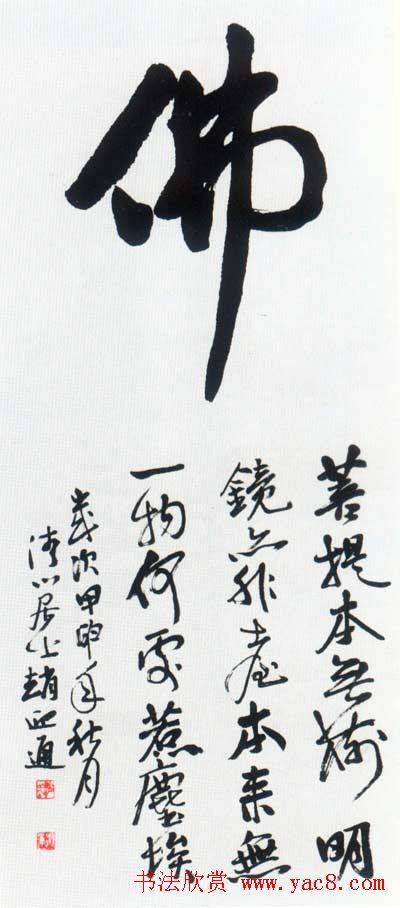 佛
菩提本無樹明
鏡亦非臺本来無
一物何處惹塵埃
歲次甲申年秋月
清心居士趙通
书法欣赏 www.yac8.com